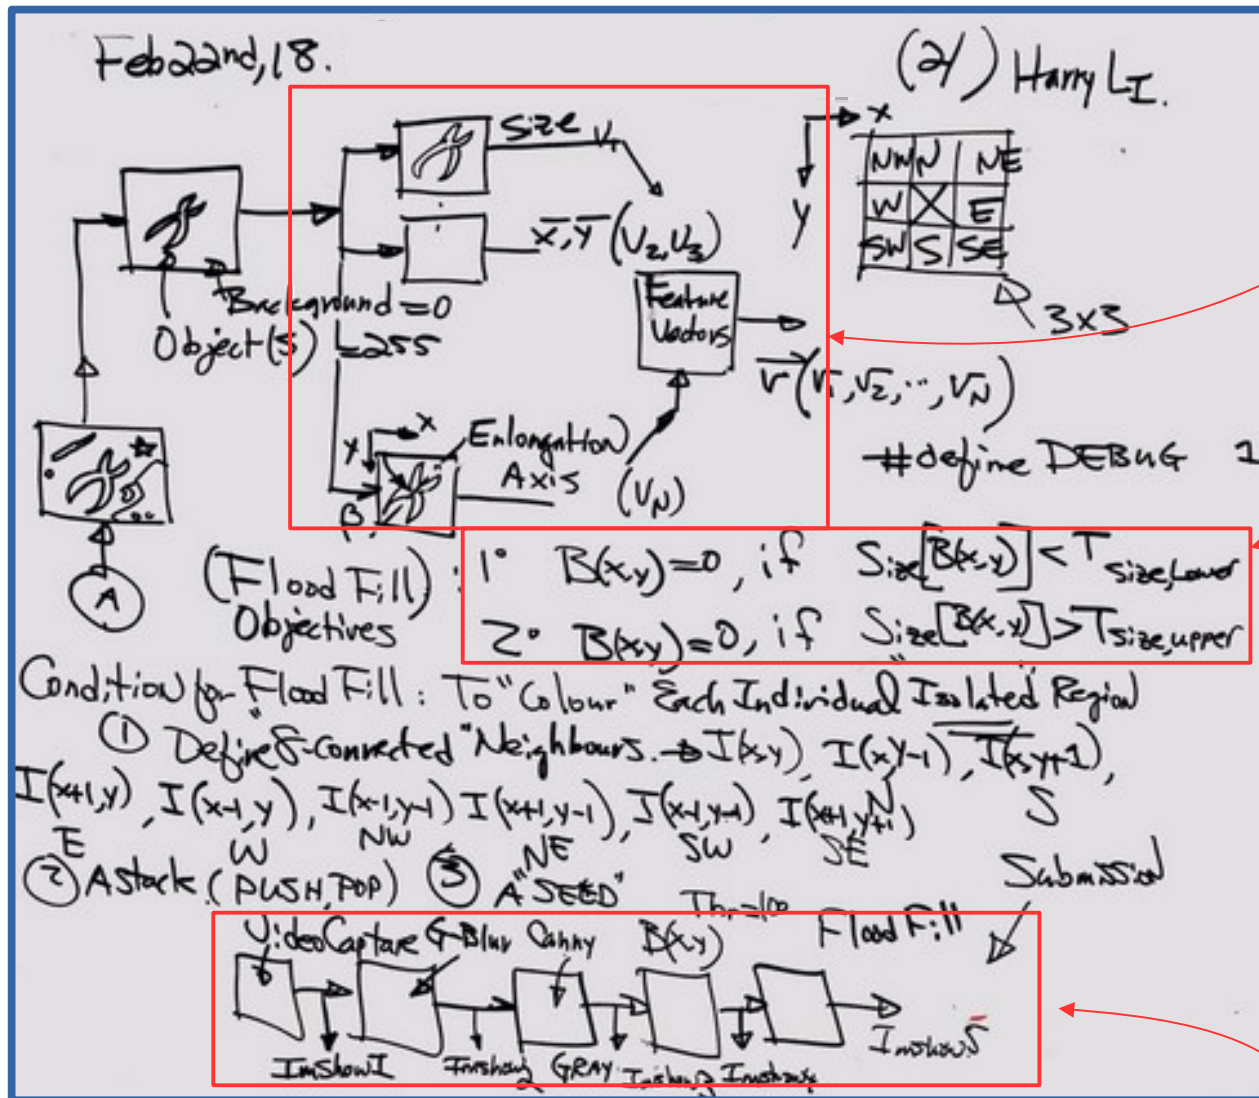 Feb 22nd, 18.
(21) Harry LI.
Size V1
x
y
NW N NE
W X E
SW S SE
3x3
x̄, ȳ (V2, V3)
Background = 0
Object(s) = 255
Feature
Vectors
V (V1, V2, ..., VN)
x
Y
Enlongation
Axis
(VN)
#define DEBUG 1
A
(Flood Fill) :
Objectives
1° B(x,y)=0, if Size[B(x,y)] < T size,Lower
2° B(x,y)=0, if Size[B(x,y)] > T size,upper
Condition for Flood Fill : To "Colour" Each Individual "Isolated" Region
① Define "8-Connected" Neighbours. → I(x,y), I(x,y-1), I(x,y+1),
N S
I(x+1,y), I(x-1,y), I(x-1,y-1) I(x+1,y-1), I(x-1,y-1), I(x+1,y+1)
E W NW NE SW SE
② A stack. (PUSH, POP) ③ A "SEED"
Submission
Thr=100
VideoCapture G-Blur Canny B(x,y) Flood Fill
ImShow1 Imshow2 GRAY Imshow3 Imshow4 Imshow5